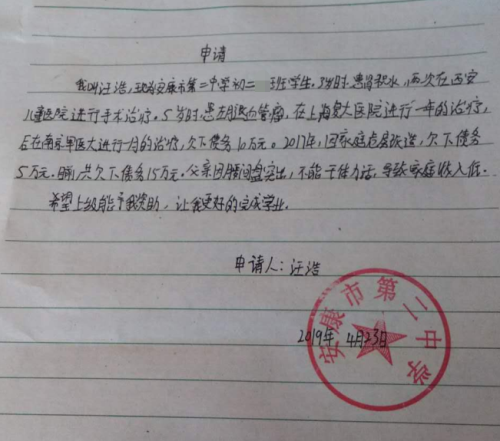 申请
我叫汪浩,现就读安康市第二中学初二 班学生。3岁时,患肾积水,两次在西安
儿童医院进行手术治疗。5岁时患血管瘤,在上海复大医院进行一年的治疗,
后在南京军医大进行一月的治疗,欠下债务10万元。2017年,因家庭危房改造,欠下债务
5万元。共欠下债务15万元。父亲因腰间盘突出,不能干体力活,导致家庭收入低。
希望上级能予我资助,让我更好的完成学业。
申请人:汪浩
2019年4月23日
安康市第二中学